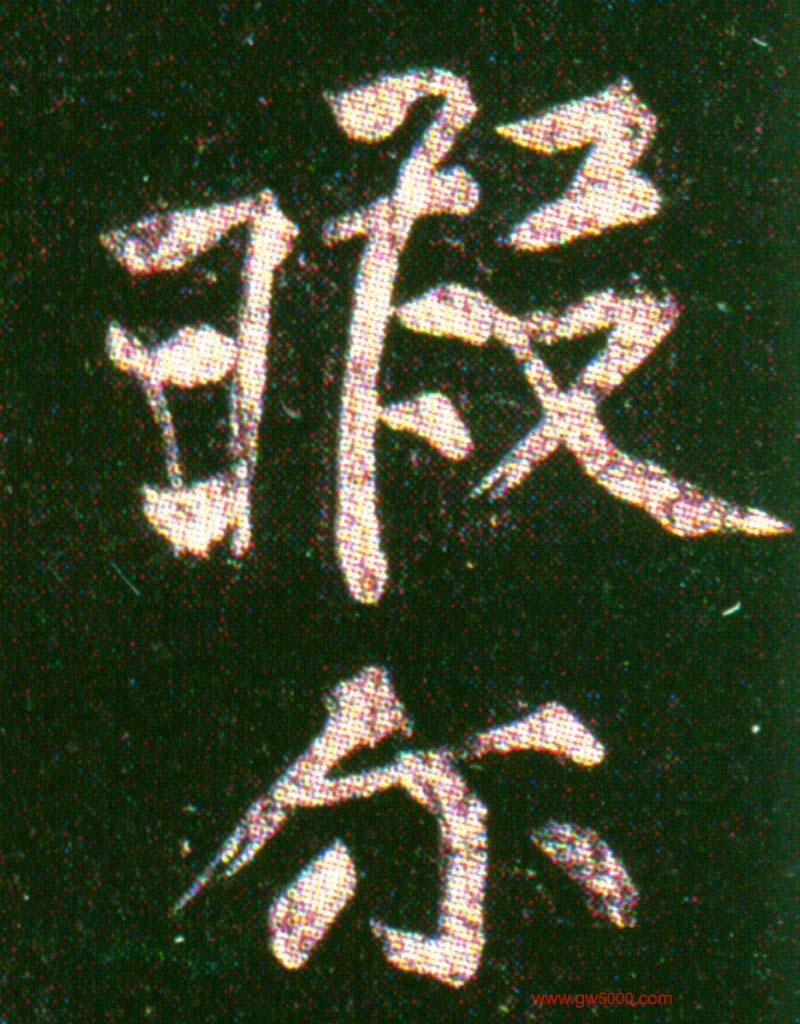 暇
尔
www.gw5000.com